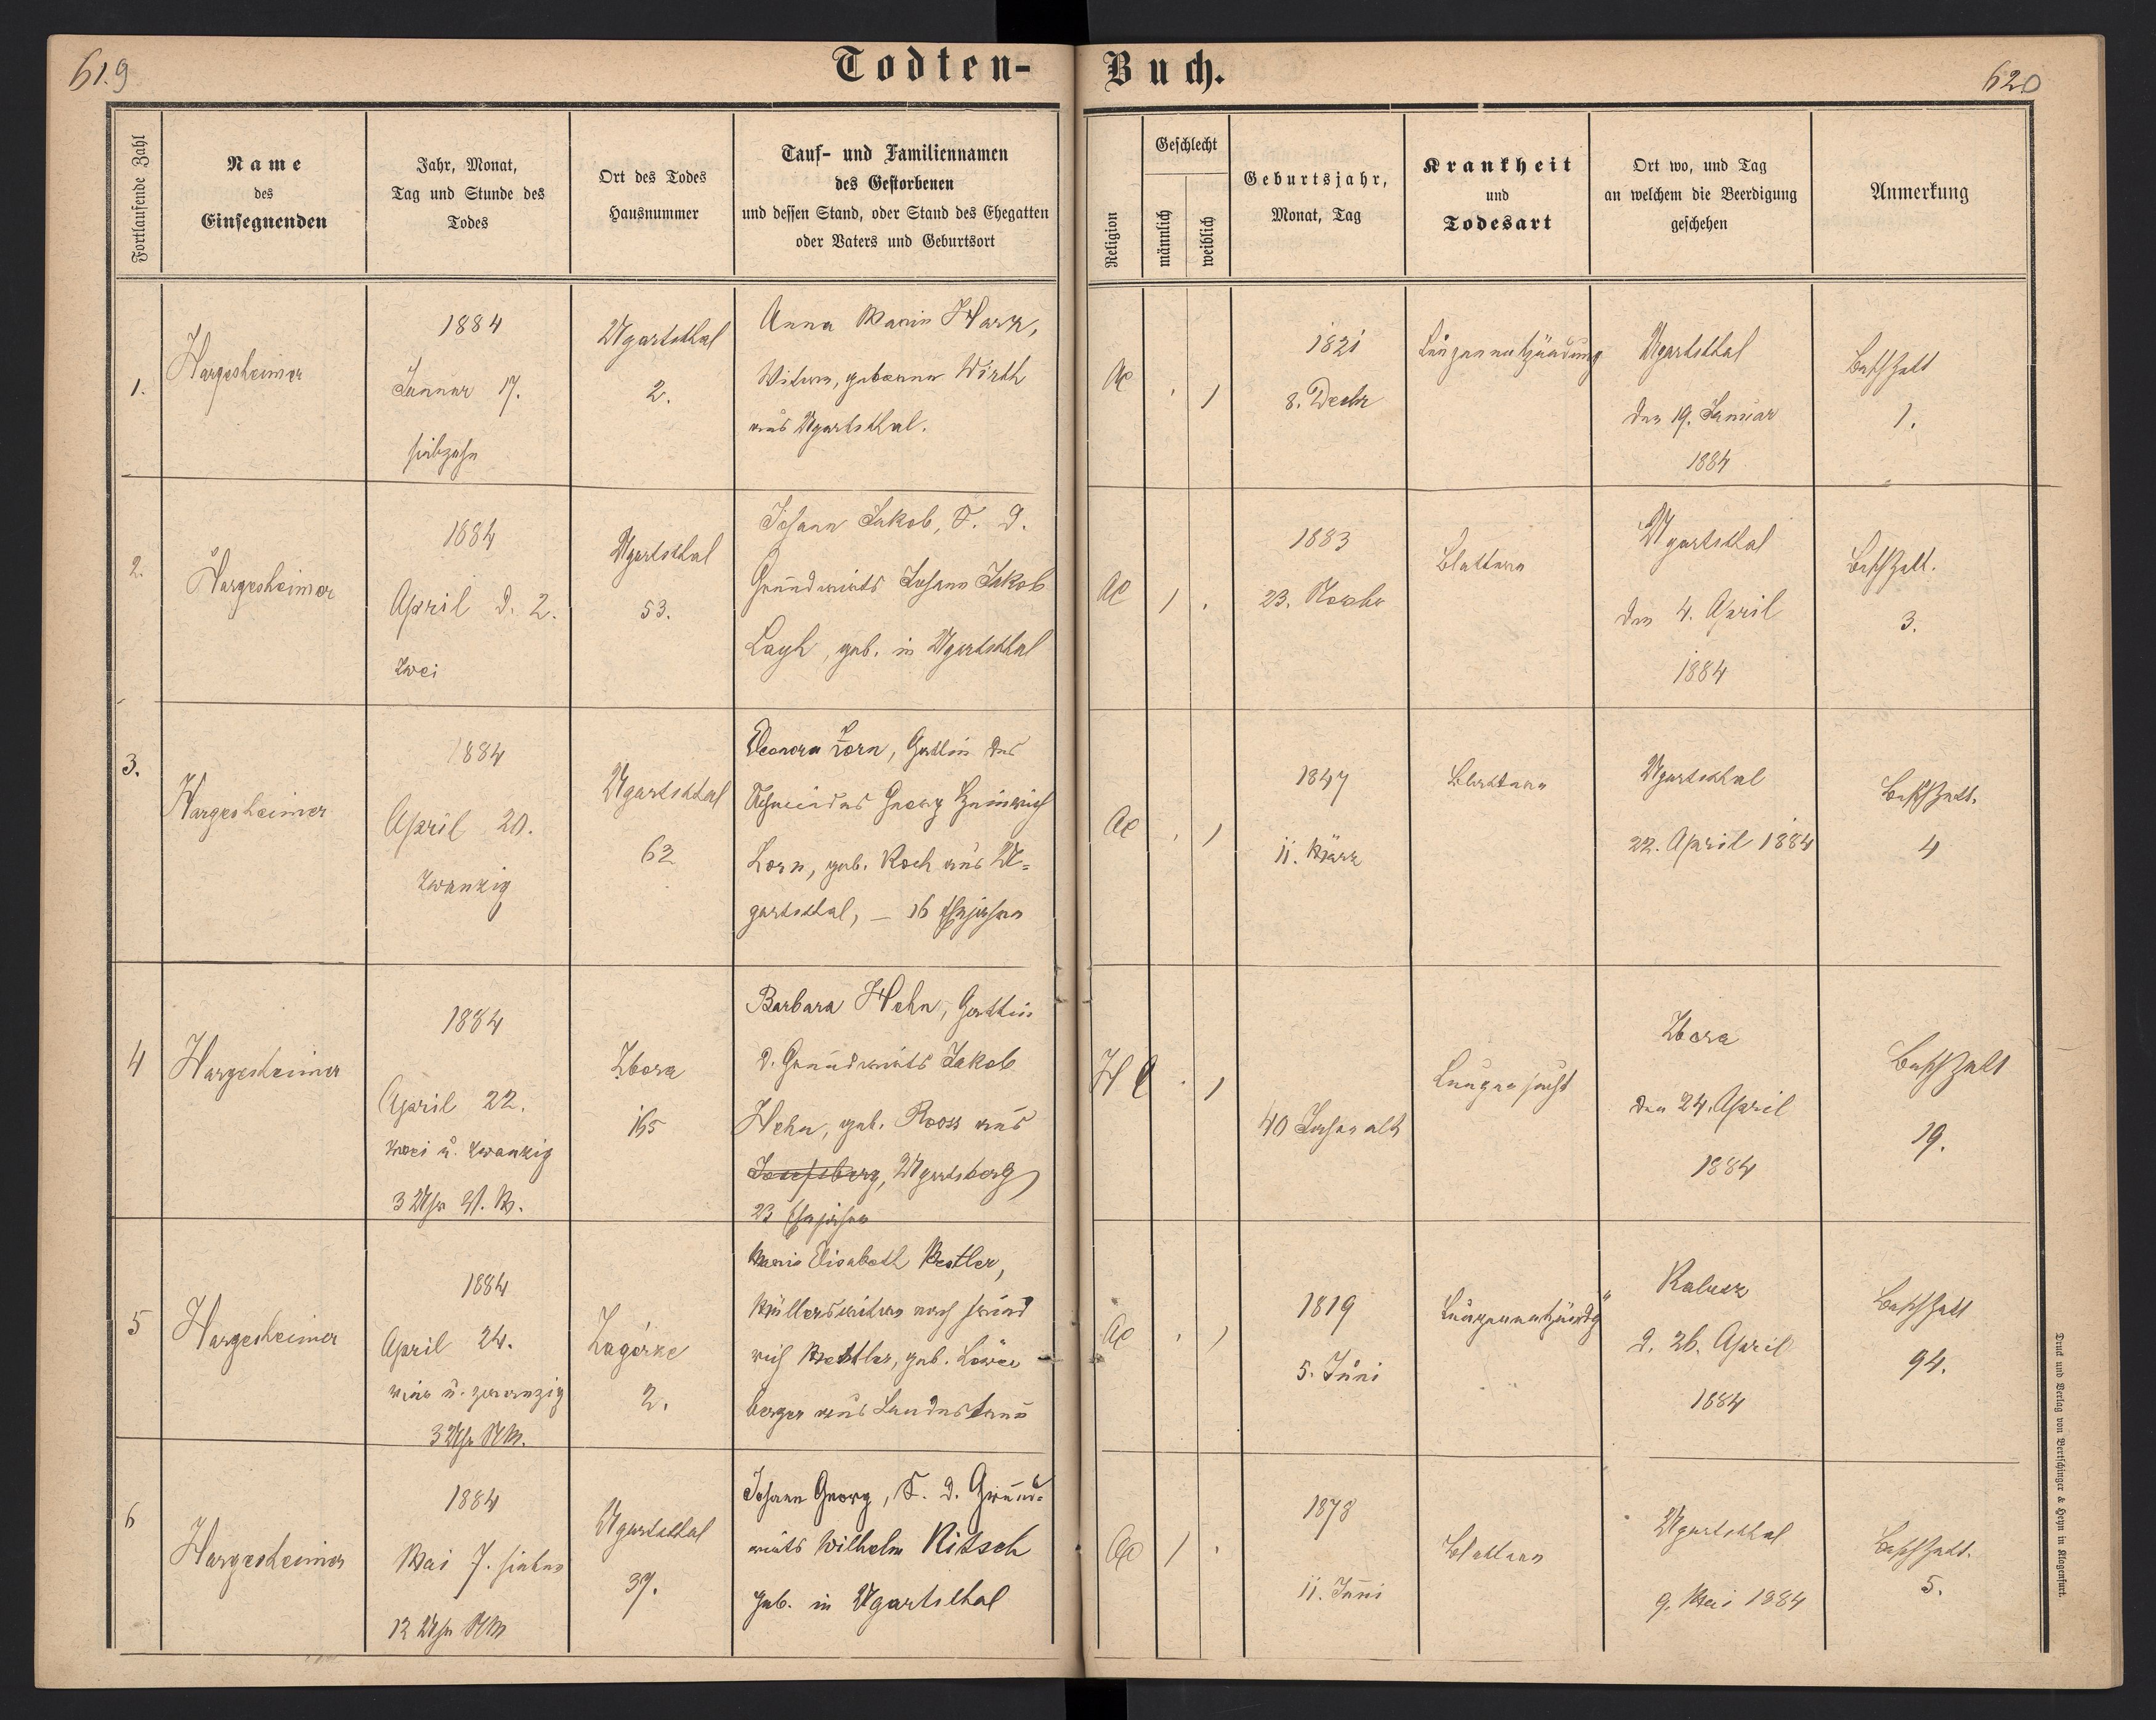 61.9
Todten-
Buch.
620
Fortlaufende Zahl
Name
des
Einsegnenden
Jahr, Monat,
Tag und Stunde des
Todes
Ort des Todes
Hausnummer
Tauf- und Familiennamen
des Gestorbenen
und dessen Stand, oder Stand des Ehegatten
oder Vaters und Geburtsort
Religion
Geschlecht
männlich
weiblich
Geburtsjahr,
Monat, Tag
Krankheit
und
Todesart
Ort wo, und Tag
an welchem die Beerdigung
geschehen
Anmerkung
1.
Hargesheimer
1884
Januar 17.
siebzehn
Ugartsthal
2.
Anna Maria Harz,
Witwe, geborene Wirth
aus Ugartsthal.
AC
1821
8. Decbr
Lungenentzündung
Ugartsthal
den 19. Januar
1884
1.
2.
Hargesheimer
1884
April d. 2.
zwei
Ugartsthal
53.
Johann Jakob, S. d.
Grundwirts Johann Jakob
geb. in Ugartsthal
AC
1883
23. Novbr
Blattern
Ugartsthal
den 4. April
1884
3.
3.
Hargesheimer
1884
April 20.
zwanzig
Ugartsthal
62
Eleonora Lorn, Gattin des
Schneiders Georg Heinrich
Lorn, geb. Koch aus U-
gartsthal, — 16 Ehejahre
AC
1847
11. März
Blattern
Ugartsthal
22. April 1884
4
4
Hargesheimer
1884
April 22.
zwei u. zwanzig
3 Uhr V. M.
Zbora
165
Barbara Hehn, Gattin
d. Grundwirts Jakob
Hehn, geb. Rooss aus
Josefsberg, Ugartsberg
23 Ehejahre
HC
40 Jahre alt
Lungensucht
Zbora
den 24. April
1884
19.
5
Hargesheimer
1884
April 24.
vier u. zwanzig
3 Uhr NM.
Zagórze
2.
Maria Elisabeth
Müllerswitwe nach Heind
rich geb. Löwen
berger aus Landestreu
AC
1819
5. Juni
Lungenentzündg
Kalusz
d. 26. April
1884
94.
6
Hargesheimer
1884
Mai 7. sieben
12 Uhr NM
Ugartsthal
37.
Johann Georg, S. d. Grund-
wirts Wilhelm Nitsch
geb. in Ugartsthal
AC
1878
11. Juni
Blattern
Ugartsthal
9. Mai 1884
5.
Druck und Verlag von Bertschinger & Heyn in Klagenfurt.